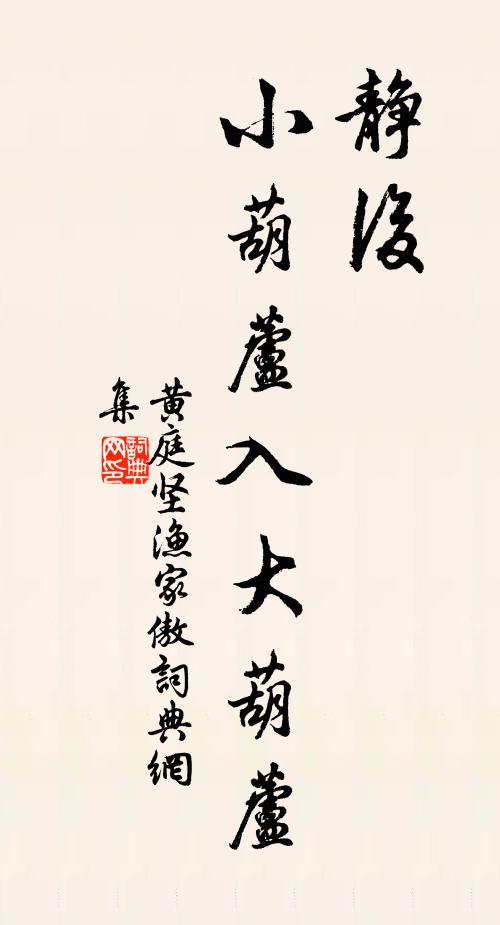 静後
小葫蘆入大葫蘆
黄庭坚漁家傲詞典網
集
詞典网印